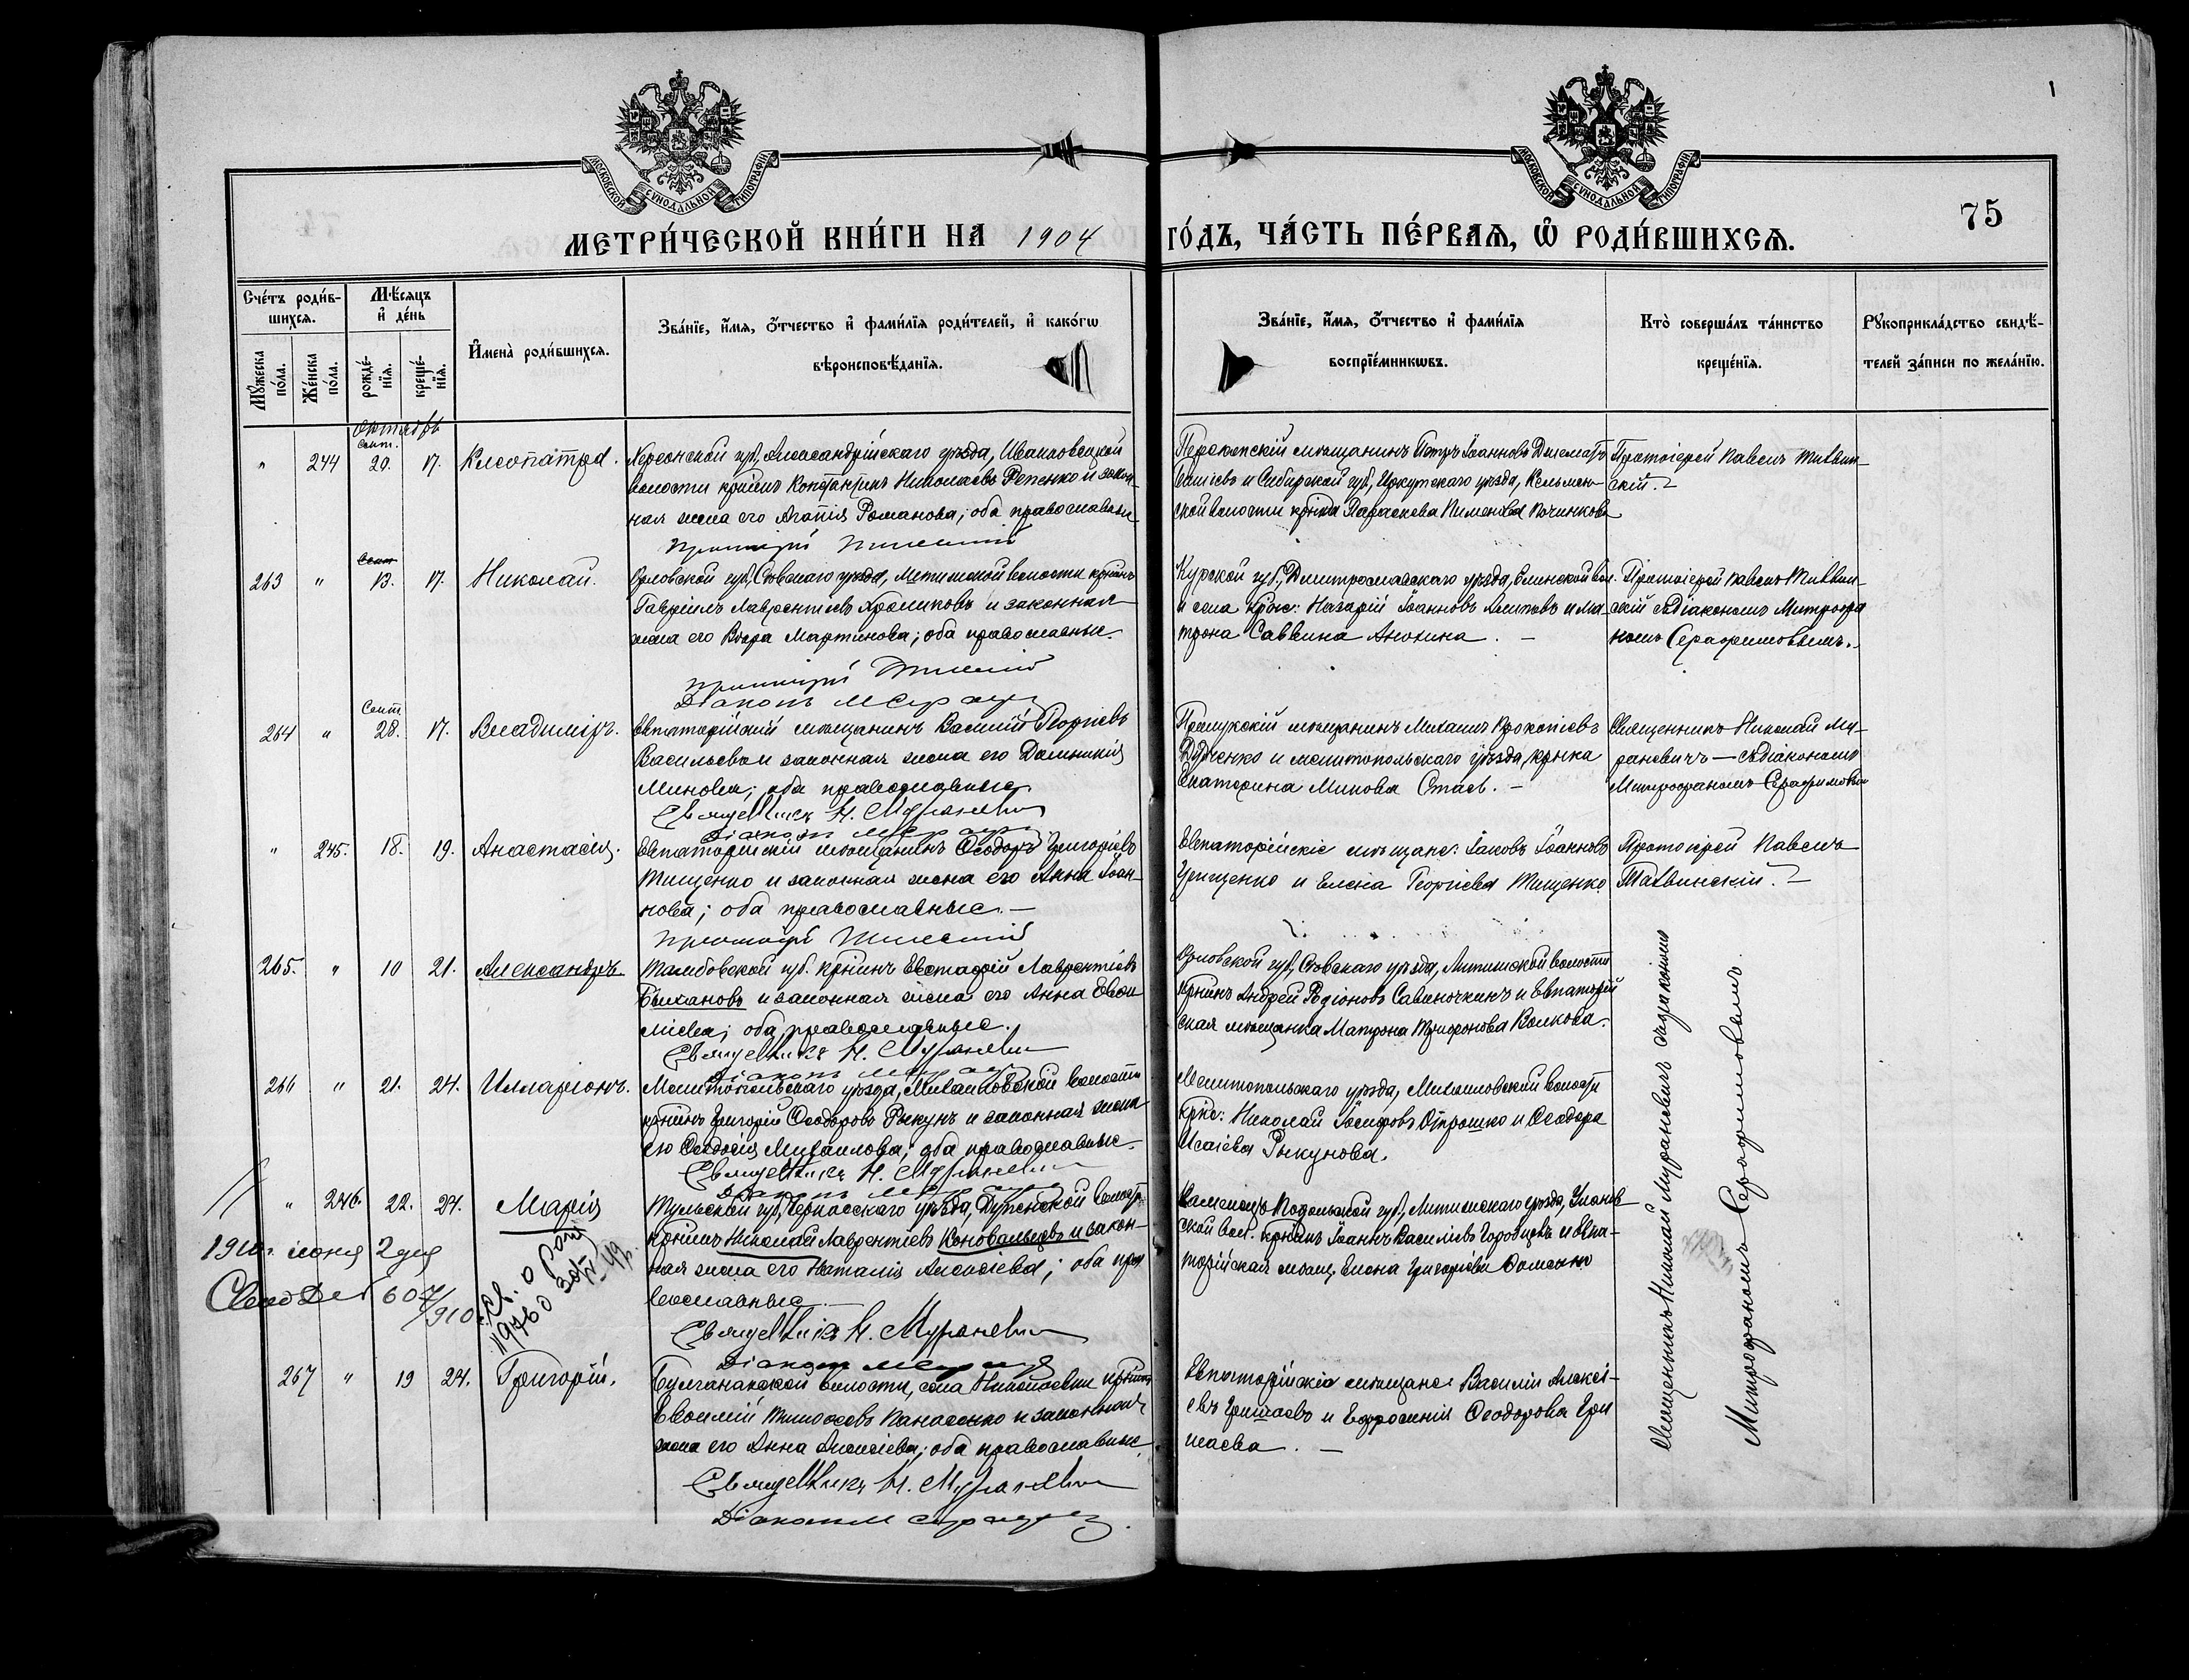 МОСКОВСКОЙ СѴНОДАЛЬНОЙ ТИПОГРАФІИ
МОСКОВСКОЙ СѴНОДАЛЬНОЙ ТИПОГРАФІИ
75
МЕТРИ́ЧЕСКОЙ КНИ́ГИ НА 1904 ГО́ДЪ, ЧА́СТЬ ПЕ́РВАѦ, Ѡ҆ РОДИ́ВШИХСѦ.
Сче́тъ роди́в-
шихсѧ.
Мꙋ́жеска по́ла.
Же́нска по́ла.
Мѣ́сѧцъ
и҆ де́нь
рожде́-
нїѧ.
креще́-
нїѧ.
И҆мена̀ роди́вшихсѧ.
Зва́нїе, и҆́мѧ, ѻ҆́тчество и҆ фами́лїѧ роди́телей, и҆ како́гѡ
вѣроисповѣ́данїѧ.
Зва́нїе, и҆́мѧ, ѻ҆́тчество и҆ фами́лїѧ
воспрїе́мникѡвъ.
Кто̀ соверша́лъ та́инство
креще́нїѧ.
Рꙋкоприкла́дство свидѣ́-
телей за́писи по жела́нїю.
Октябрь
" 244 Сент. 20. 17. Клеопатра.
Херсонской губ., Александрійскаго уѣзда, Ивановецкой
волости крнинъ Константинъ Николаевъ Репенко и закон-
ная жена его Агапія Романова; оба православные
Протоіерей Титвинскій
Перекопскій мѣщанинъ Петръ Іоанновъ
и Сибирской губ., Иркутскаго уѣзда,
ской волости крнка Параскева Пименова Починкова
Протоіерей Павелъ Титвин-
скій.
263 " 13. 17. Николай.
Орловской губ., Сѣвскаго уѣзда, волости крнинъ
Гавріилъ Лаврентьевъ Хроликовъ и законная
жена его Вѣра Мартинова; оба православные.
Протоіерей Титвинскій
Діаконъ М Сераф
Курской губ., Дмитрославскаго уѣзда, вол.
и села крне: Назарій Іоанновъ и Ма-
трона Саввина Анохина. -
Протоіерей Павелъ Титвин-
скій съ діакономъ Митрофа
номъ Серафимовымъ.
264 " Сент 28. 17. Владиміръ.
Евпаторійскій мѣщанинъ Василій Георгіевъ
Васильевъ и законная жена его Домникія
Минова; оба православные
Священникъ Н. Мураневич
Діаконъ М Сераф
Прилукскій мѣщанинъ Михаилъ Прокопіевъ
и мелитопольскаго уѣзда, крнка
Екатерина Минова Стаев. -
Священникъ Николай Му-
раневичъ — съ діакономъ
Митрофаномъ Серафимовым
" 245. 18. 19. Анастасія.
Евпаторійскій мѣщанинъ Ѳеодоръ Григоріевъ
Тищенко и законная жена его Анна Іоан-
нова; оба православные. —
Протоіерей Титвинскій
Евпаторійскіе мѣщане: Іаковъ Іоанновъ
Грищенко и Елена Георгіева Тищенко.
Протоіерей Павелъ
Титвинскій. —
265. " 10 21. Александръ.
Тамбовской губ. крнинъ Евстафій Лаврентіевъ
Быхановъ и законная жена его Анна Евѳи-
міева; оба православные.
Священникъ Н. Мураневич
Діаконъ М Сераф
Орловской губ., Сѣвскаго уѣзда, волости
крнинъ Андрей Родіоновъ Савиночкинъ и Евпаторій
ская мѣщанка Матрона Трифонова Волкова.
Священникъ Николай Мураневичъ съ діакономъ
Митрофаномъ Серафимовымъ.
266 " 21. 24. Илларіонъ.
Мелитопольскаго уѣзда, Михайловской волости
крнинъ Григорій Ѳеодоровъ Рыкунъ и законная жена
его Ѳеодосія Михаилова; оба православные.
Священникъ Н. Мураневич
Діаконъ М Сераф
Мелитопольскаго уѣзда, Михайловской волости
крне: Николай Іосифовъ Отрошко и Ѳеодора
Исаіева Рыкунова.
" 246. 22. 24. Марія
Тульской губ., Черкасскаго уѣзда, волости
крнинъ Николай Лаврентіевъ Коновальцевъ и закон-
ная жена его Наталія Алексіева; оба пра
вославные.
Священникъ Н. Мураневич
Діаконъ М Сераф
Каменецъ Подольской губ., уѣзда,
ской вол. крнинъ Іоаннъ Василіевъ Городицкъ и Евпа-
торійская мѣщ. Елена Григоріева Фоменко
1910г. іюня 2 дня
607/910
267 " 19 24. Григорій.
Булганакской волости, села Николаевки крнинъ
Евѳимій Тимоѳеевъ Панасенко и законная
жена его Анна Алексіева; оба православные.
Священникъ Н. Мураневич
Діаконъ М Сераф
Евпаторійскіе мѣщане Василій Алексі-
евъ Гришаевъ и Ефросинія Ѳеодорова Гри
шаева. —